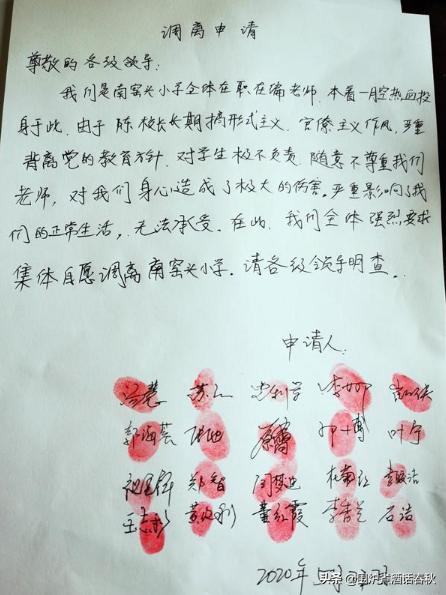 调离申请
尊敬的各级领导：
我们是南窑头小学全体在职在编老师，本着一腔热血投
身于此，由于陈校长长期搞形式主义、官僚主义作风，严重
背离党的教育方针，对学生极不负责，随意不尊重我们
老师，对我们身心造成了极大的伤害，严重影响了我
们的正常生活，无法承受。在此，我们全体强烈要求
集体自愿调离南窑头小学。请各级领导明查。
申请人：
郭海芸 叶宁
郑智 杜菊红
王志 董红霞 李香兰 石洁
2020年5月
头条